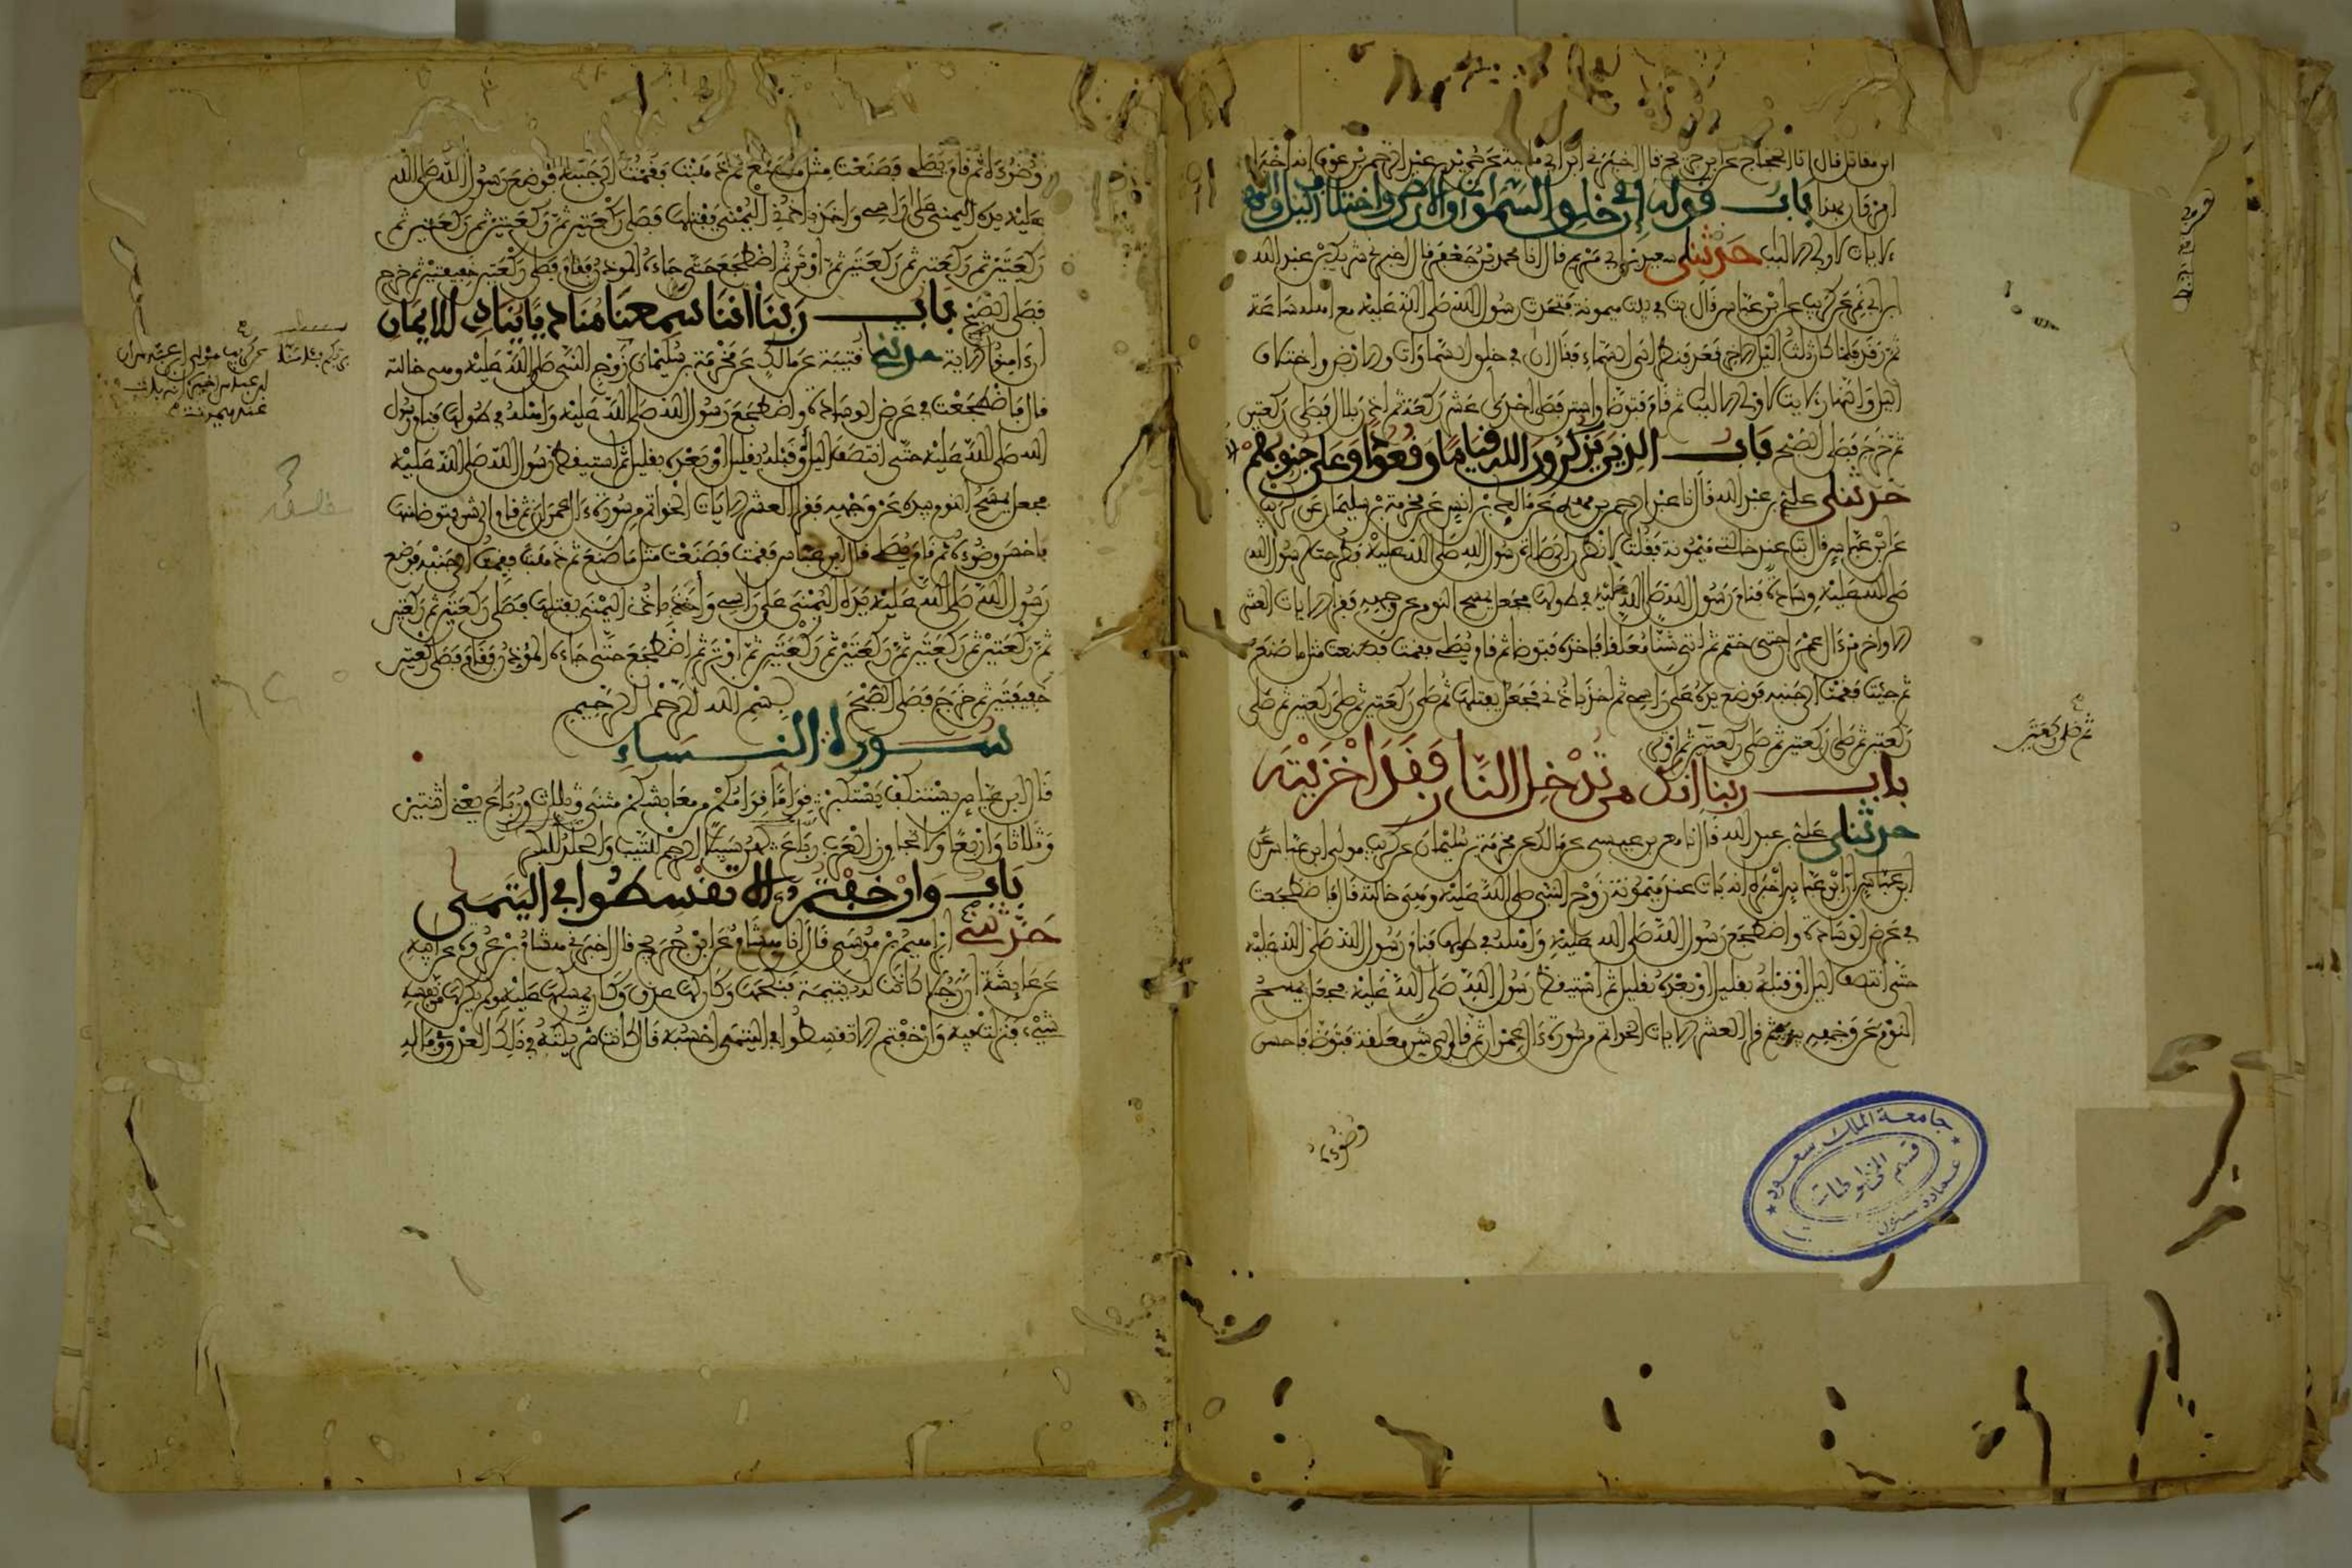 ابن مقاتل قال انا الحجاج عن ابن جريج قال اخبرني ابن ابي مليكة عن حميد بن عبد الرحمن بن عوف انه اخبره
بهذا باب قوله ان في خلق السموات والارض واختلاف اليل والنهار
الايات لاولي الالباب حدثني سعيد بن ابي مريم قال انا محمد بن جعفر قال اخبرني شريك بن عبد الله
ابن ابي نمر عن كريب عن ابن عباس قال بت في بيت ميمونة فتحدث رسول الله صلى الله عليه مع اهله ساعة
ثم رقد فلما كان ثلث اليل الاخر قعد فنظر الى السماء فقال ان في خلق السماوات والارض واختلاف
اليل والنهار لايات لاولي الالباب ثم قام فتوضا واستن فصلى احدى عشر ركعة ثم اذن بلال فصلى ركعتين
ثم خرج فصلى الصبح باب الذين يذكرون الله قياما وقعودا وعلى جنوبهم
حدثني علي بن عبد الله قال انا عبد الرحمن بن مهدي عن مالك بن انس عن مخرمة بن سليمان عن كريب
عن ابن عباس قال بت عند خالتي ميمونة فقلت لانظرن الى صلاة رسول الله صلى الله عليه فطرحت لرسول الله
صلى الله عليه وسادة فنام رسول الله صلى الله عليه في طولها فجعل يمسح النوم عن وجهه فقرا الايات العشر
الاواخر من ءال عمران حتى ختم ثم اتى شنا معلقا فاخذه فتوضا ثم قام يصلي فقمت فصنعت مثل ما صنع
ثم جئت فقمت الى جنبه فوضع يده على راسي ثم اخذ باذني فجعل يفتلها ثم صلى ركعتين ثم صلى ركعتين ثم صلى
ركعتين ثم صلى ركعتين ثم صلى ركعتين ثم اوتر
ثم صلى ركعتين
باب ربنا انك من تدخل النار فقد اخزيته
حدثني علي بن عبد الله قال انا معن بن عيسى عن مالك عن مخرمة بن سليمان عن كريب مولى ابن عباس عن
ابن عباس ان ابن عباس اخبره انه بات عند ميمونة زوج النبي صلى الله عليه وهي خالته قال فاضطجعت
في عرض الوسادة واضطجع رسول الله صلى الله عليه واهله في طولها فنام رسول الله صلى الله عليه
حتى انتصف اليل او قبله بقليل او بعده بقليل ثم استيقظ رسول الله صلى الله عليه فجعل يمسح
النوم عن وجهه بيده ثم قرا العشر الايات الخواتم من سورة ءال عمران ثم قام الى شن معلقة فتوضا فاحسن
وضوءه
جامعة الملك سعود
قسم المخطوطات
وضوءه ثم قام يصلي فصنعت مثل ما صنع ثم ذهبت فقمت الى جنبه فوضع رسول الله صلى الله
عليه يده اليمنى على راسي واخذ باذني اليمنى يفتلها فصلى ركعتين ثم ركعتين ثم ركعتين ثم
ركعتين ثم ركعتين ثم ركعتين ثم اوتر ثم اضطجع حتى جاءه الموذن فقام فصلى ركعتين خفيفتين ثم خرج
فصلى الصبح باب ربنا اننا سمعنا مناديا ينادي للايمان
ان ءامنوا الاية حدثنا قتيبة عن مالك عن مخرمة بن سليمان زوج النبي صلى الله عليه وهي خالته
عن كريب مولى ابن عباس ان
ابن عباس اخبره انه بات
عند ميمونة
قال فاضطجعت في عرض الوسادة واضطجع رسول الله صلى الله عليه واهله في طولها فنام رسول
الله صلى الله عليه حتى انتصف اليل او قبله بقليل او بعده بقليل ثم استيقظ رسول الله صلى الله عليه
فجعل يمسح النوم بيده عن وجهه فقرا العشر الايات الخواتم من سورة ءال عمران ثم قام الى شن فتوضا منها
فاحسن وضوءه ثم قام يصلي قال ابن عباس فقمت فصنعت مثل ما صنع ثم ذهبت فقمت الى جنبه فوضع
رسول الله صلى الله عليه يده اليمنى على راسي واخذ باذني اليمنى يفتلها فصلى ركعتين ثم ركعتين
ثم ركعتين ثم ركعتين ثم ركعتين ثم ركعتين ثم اوتر ثم اضطجع حتى جاءه الموذن فقام فصلى ركعتين
خفيفتين ثم خرج فصلى الصبح بسم الله الرحمن الرحيم
سورة النساء
قال ابن عباس يستنكف يستكبر قواما قوامكم من معايشكم مثنى وثلاث ورباع يعني اثنتين
وثلاثا واربعا ولا تجاوز العرب رباع لهن سبيلا الرجم للثيب والجلد للبكر
باب وان خفتم الا تقسطوا في اليتمى
حدثني ابراهيم بن موسى قال انا هشام عن ابن جريج قال اخبرني هشام بن عروة عن ابيه
عن عايشة ان رجلا كانت له يتيمة فنكحها وكان لها عذق وكان يمسكها عليه ولم يكن لها من نفسه
شيء فنزلت فيه وان خفتم الا تقسطوا في اليتمى احسبه قال كانت شريكته في ذلك العذق وفي ماله